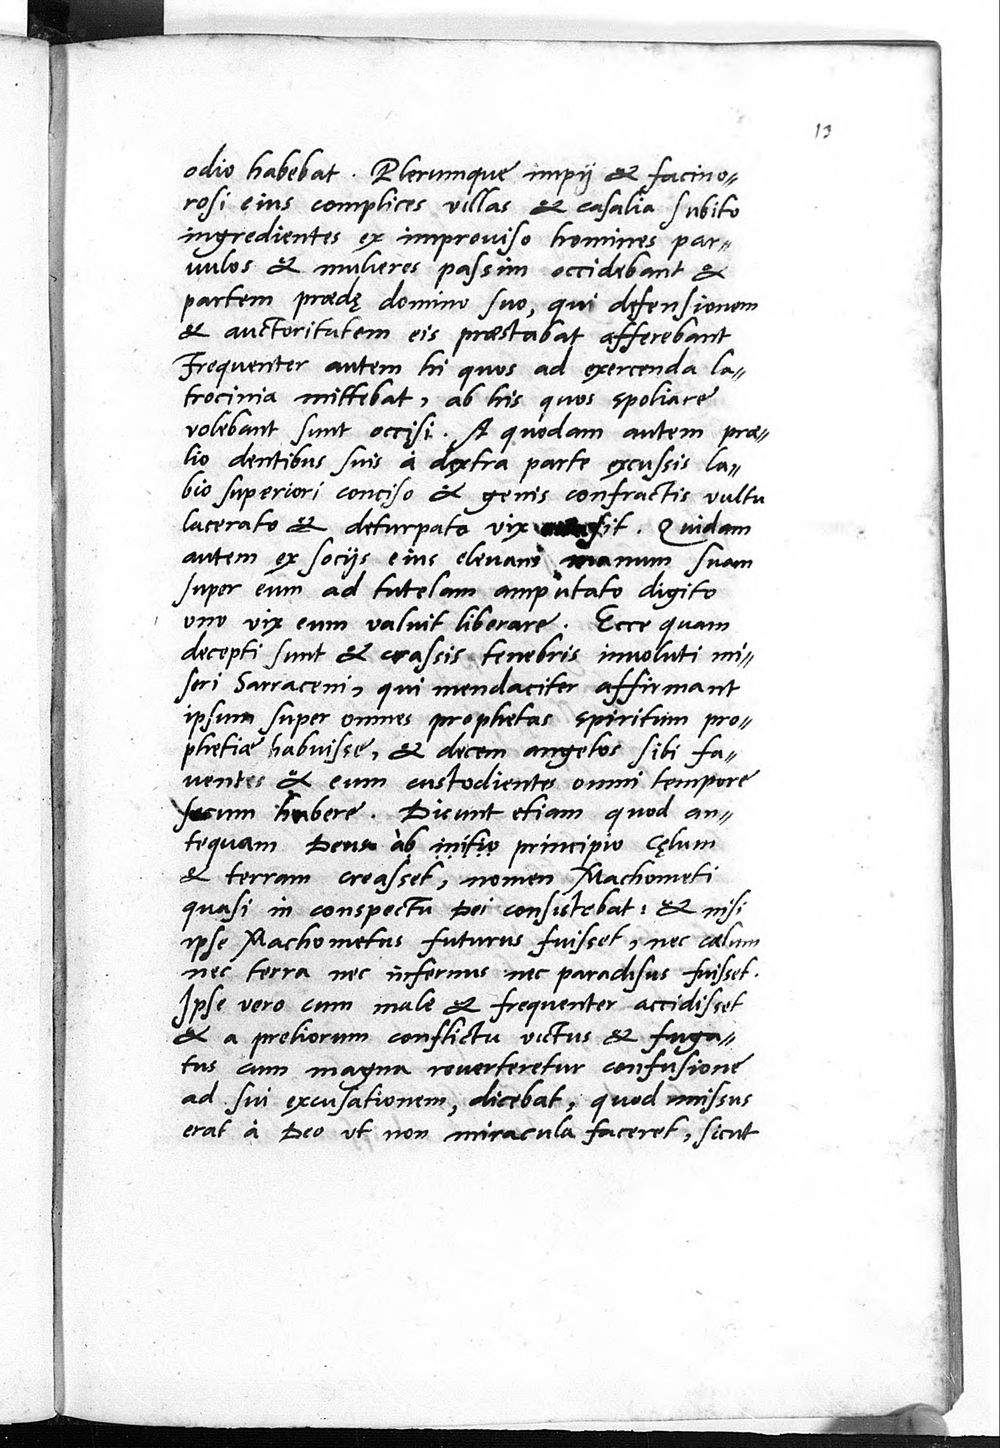 13
odio habebat. Plerumque impij & facino=
rosi eius complices villas & casalia subito
ingredientes ex improuiso homines par=
uulos & mulieres passim occidebant &
partem prædę domino suo, qui dęfensionem
& auctoritatem eis præstabat afferebant
Frequenter autem hi quos ad exercenda la=
trocinia mittebat, ab his quos spoliare
volebant sunt occisi. A quodam autem præ=
lio dentibus suis à dextra parte excussis la=
bio superiori conciso & genis confractis vultu
lacerato & deturpato vix sit. Quidam
autem ex socijs eius eleuans manum suam
super eum ad tutelam amputato digito
uno vix eum valuit liberare. Ecce quam
decepti sunt & crassis tenebris inuoluti mi=
seri Sarraceni, qui mendaciter affirmant
ipsum super omnes prophetas spiritum pro=
phetiæ habuisse, & decem angelos sibi fa=
uentes & eum custodientes omni tempore
secum habere. Dicunt etiam quod an=
tequam Deus ab initio principio cęlum
& terram creasset, nomen Machometi
quasi in conspectu Dei consistebat: & nisi
ipse Machometus futurus fuisset, nec cælum
nec terra nec infernus nec paradisus fuisset.
Ipse vero cum male & frequenter accidisset
& a preliorum conflictu victus & fuga=
tus cum magna reuerteretur confusione
ad sui excusationem, dicebat, quod missus
erat à Deo vt non miracula faceret, sicut